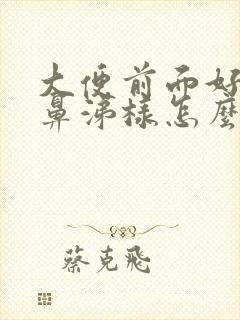 大便前而好
鼻涕样怎麼
蔡克飛